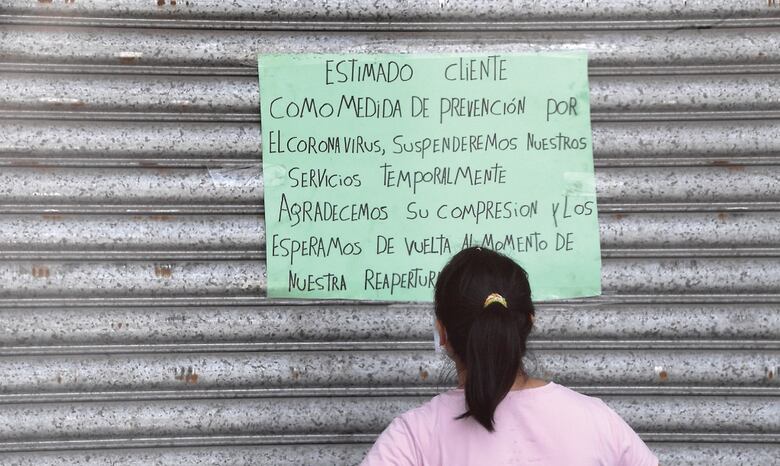 ESTIMADO CLIENTE
COMO MEDIDA DE PREVENCIÓN POR
EL CORONAVIRUS, SUSPENDEREMOS NUESTROS
SERVICIOS TEMPORALMENTE
AGRADECEMOS SU COMPRESION Y LOS
ESPERAMOS DE VUELTA AL MOMENTO DE
NUESTRA REAPERTUR